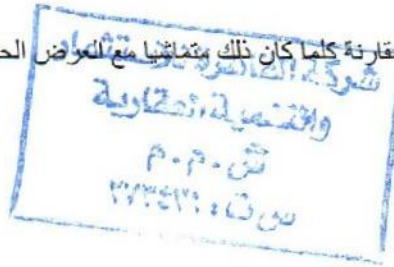 قارنة كلما كان ذلك متماشيا مع العرض الح
شركة القاهرة للاستثمار
والتنمية العقارية
ش.م.م
س.ت: